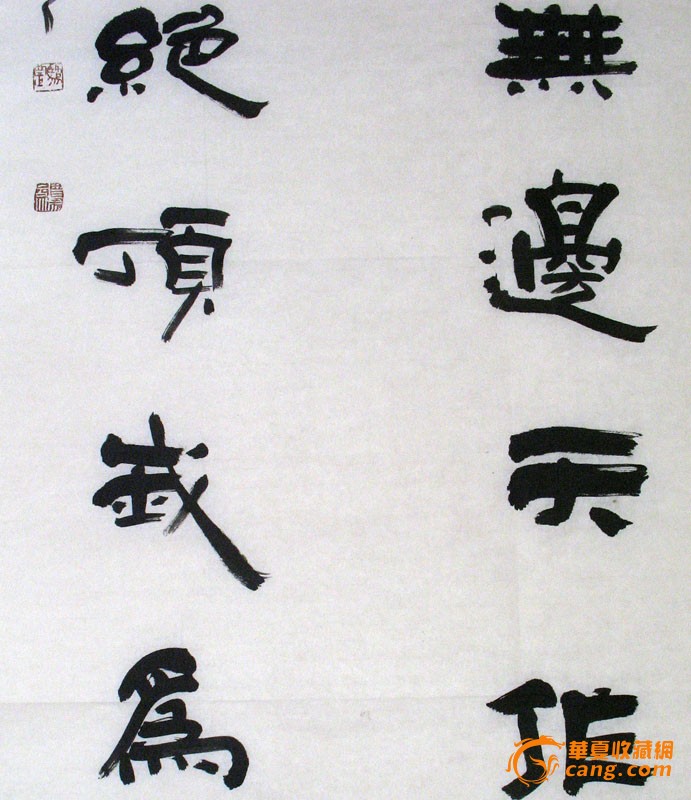 無邊天作
絕頂我爲
華夏收藏網
cang.com